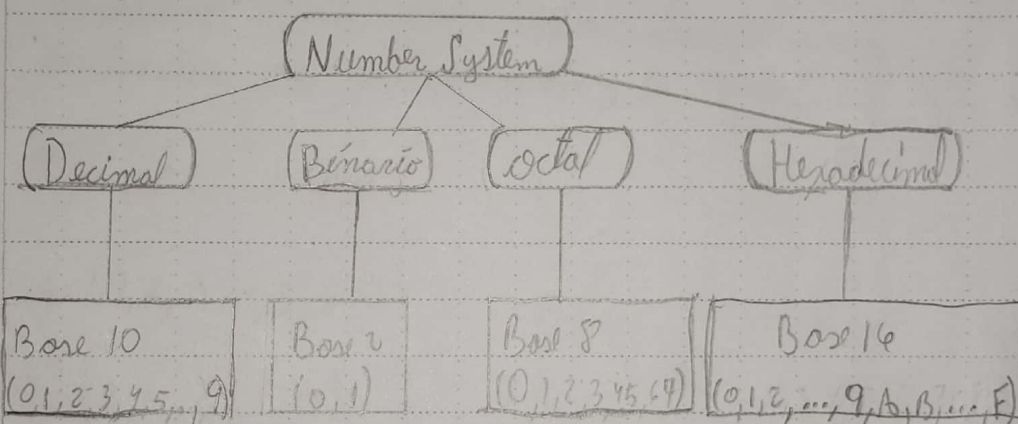 Number System
Decimal
Binário
Octal
Hexadecimal
Base 10
(0,1,2,3,4,5,..,9)
Base 2
(0,1)
Base 8
(0,1,2,3,4,5,6,7)
Base 16
(0,1,2,...,9,A,B,...,F)